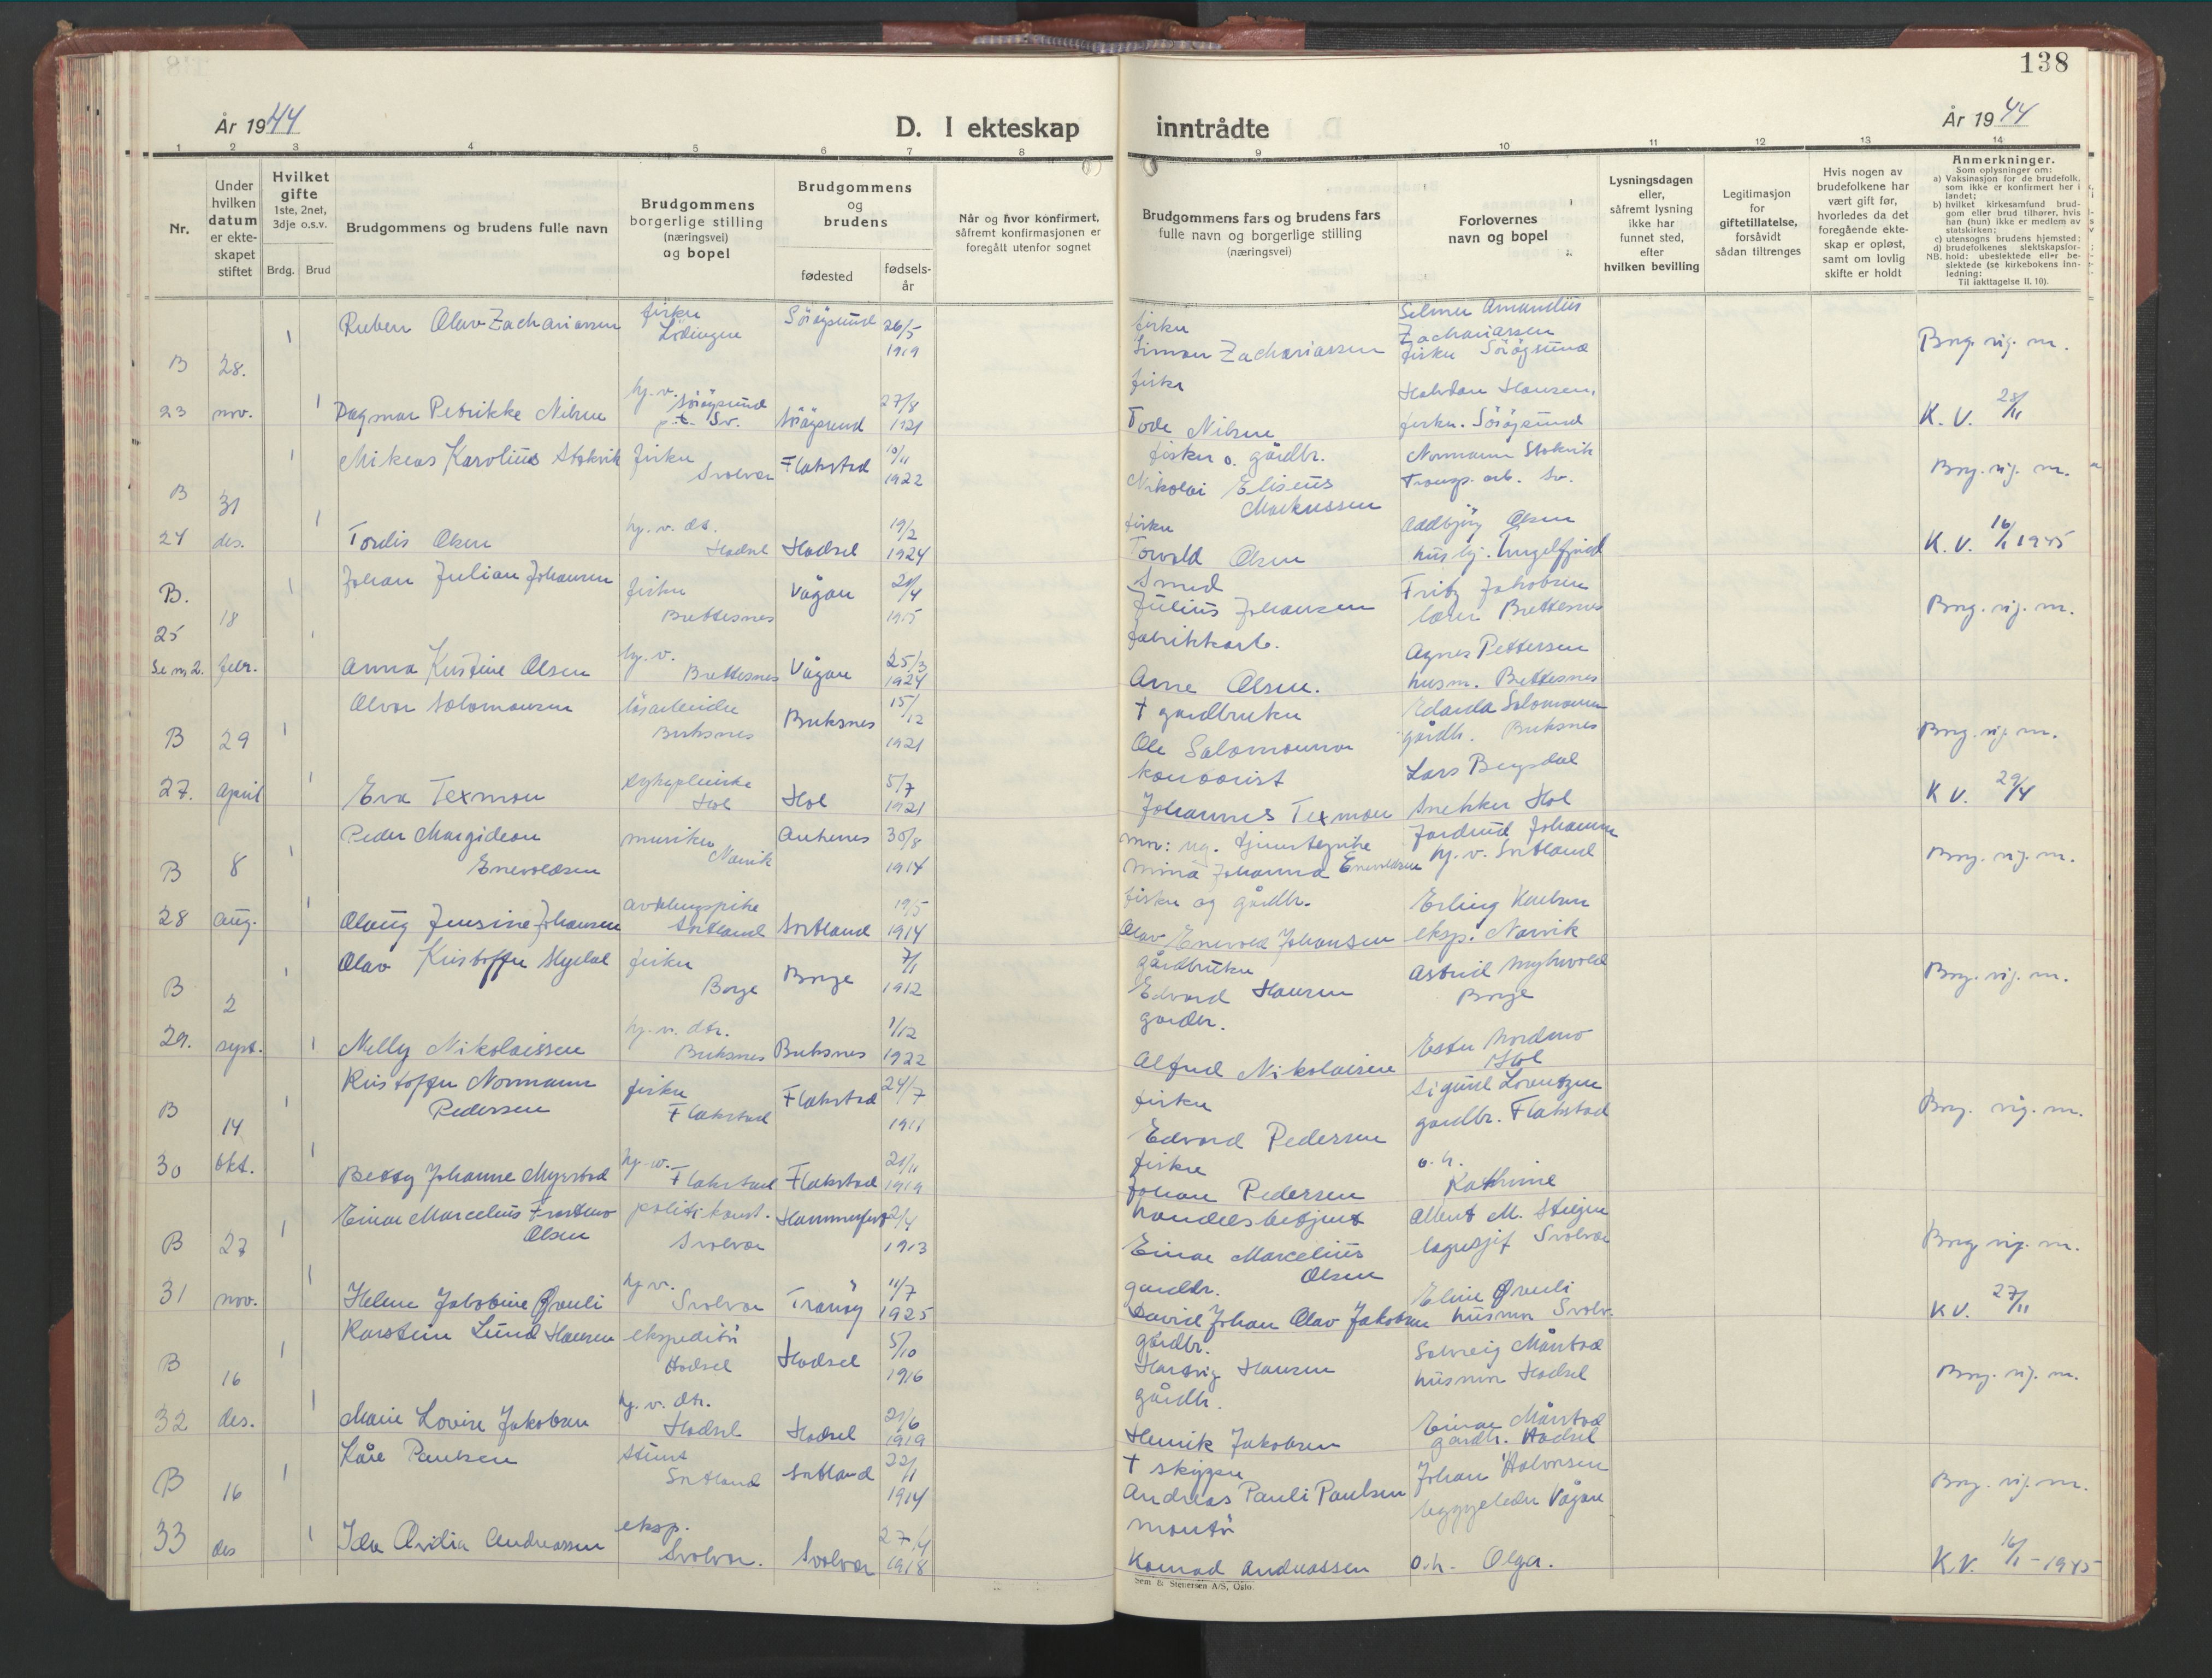 138
År 1944
D. I ekteskap inntrådte
År 1944
1 2 3 4 5 6 7 8 9 10 11 12 13 14
Nr.
Under hvilken datum er ekte- skapet stiftet
Hvilket gifte 1ste, 2net, 3dje o.s.v.
Brdg. Brud
Brudgommens og brudens fulle navn
Brudgommens borgerlige stilling (næringsvei) og bopel
Brudgommens og brudens
fødested
fødsels- år
Når og hvor konfirmert, såfremt konfirmasjonen er foregått utenfor sognet
Brudgommens fars og brudens fars fulle navn og borgerlige stilling (næringsvei)
Forlovernes navn og bopel
Lysningsdagen eller, såfremt lysning ikke har funnet sted, efter hvilken bevilling
Legitimasjon for giftetillatelse, forsåvidt sådan tiltrenges
Hvis nogen av brudefolkene har vært gift før, hvorledes da det foregående ekte- skap er opløst, samt om lovlig skifte er holdt
Anmerkninger.
Som oplysninger om:
a) Vaksinasjon for de brudefolk, som ikke er konfirmert her i landet;
b) hvilket kirkesamfund brud- gom eller brud tilhører, hvis han (hun) ikke er medlem av statskirken;
c) utensogns brudens hjemsted;
d) brudefolkenes slektskapsfor- hold: ubeslektede eller be- slektede (se kirkebokens inn- ledning:
NB.
Til iakttagelse II. 10).
B 28. 1 Ruben Olav Zachariassen fisker Lödingen 26/5 1919
fisker Simon Zachariassen Selmer Amandus Zachariassen fisker Borg. vig. m.
23 nov. 1 Dagmar Petrikke Nilsen hj. v. p.t. Sv. 27/8 1921
fisker Tode Nilsen Halvdan Hansen, fisker. K. V. 28/11
B 31 1 Mikeas Karolius Stokvik fisker Svolvær Flakstad 10/11 1922
fisker o. gårdbr. Nikolai Eliseus Markussen Normann Stokvik Transp. arb. Sv. Borg. vig. m.
24 des. 1 Tordis Olsen hj. v. dt. Hadsel Hadsel 19/2 1924
fisker Torvald Olsen Oddbjörg Olsen hushj. K. V. 16/1 1945
B. 18 1 Johan Julian Johansen fisker Brettesnes Vågan 21/4 1915
Smed Julius Johansen Fritz Jakobsen lærer Brettesnes Borg. vig. m.
25 Se nr 2. febr. 1 Anna Kristine Olsen hj. v. Brettesnes Vågan 25/3 1924
fabrikkarb. Arne Olsen. Agnes Pettersen husm. Brettesnes
B 29 1 Alvor Salomonsen lösarbeider Buksnes Buksnes 15/12 1921
† gardbruker Ole Salomonsen gårdb. Buksnes Borg. vig. m.
27. april 1 Eva Texmon sykepleierske Hol Hol 5/7 1921
kontorist Johannes Texmon Lars Bergsdal snekker Hol K V. 29/4
B 8 1 Peder Margideon Enevoldsen musiker Narvik 30/8 1914
mor: ug. tjenestepike Mina Johanna Enevoldsen Jordrud Johansen hj. v. Sortland Borg. vig. m.
28 aug. 1 Olaug Jensine Johansen avdelingspike Sortland Sortland 19/5 1914
fisker og gårdbr. Olav Enevold Johansen Erling Karlsen eksp. Narvik
B 2 1 Olav Kristoffer Hyldal fisker Borge Borge 7/1 1912
gårdbruker Edvard Hansen Astrid Myhrvold Borge Borg. vig. m.
29. sept. 1 Nelly Nikolaissen hj. v. dtr. Buksnes Buksnes 1/12 1922
gardbr. Alfred Nikolaisen Ester Nordmo Hol
B 14 1 Kristoffer Normann Pedersen fisker Flakstad Flakstad 24/7 1911
fisker Edvard Pedersen Sigurd Lorentzen gardbr. Flakstad Borg. vig. m.
30 okt. 1 Betsy Johanne Myrstad hj. v. Flakstad Flakstad 21/11 1919
fisker Johan Pedersen o. h. Kathrine
B 27 1 Einar Marcelius Frostmo Olsen politikonst. Svolvær Hammerfest 2/4 1913
handelsbetjent Einar Marcelius Olsen Albert M. Steigen lagersjef Svolvær Borg vig. m.
31 nov. 1 Helene Jakobine Øveuli hj v. Svolvær Tranöy 11/7 1925
gardbr. David Johan Olav Jakobsen Eline Øveuli husmor Svolv. K V. 27/11
B 16 1 Karstein Lund Hansen ekspeditör Hadsel Hadsel 5/10 1916
gårdbr. Hartvig Hansen Solveig Mårstad husmor Hadsel Borg. vig. m.
32 des. 1 Marie Lovise Jakobsen hj. v. dtr. Hadsel Hadsel 21/6 1919
gårdbr. Henrik Jakobsen Einar Mårstad gardbr. Hadsel
B 16 1 Kåre Paulsen stuert Sortland Sortland 22/1 1914
† skipper Andreas Pauli Paulsen Johan Halvorsen byggeleder Vågan Borg. vig. m.
33 des 1 Ida Ovidia Andreassen eksp. Svolvær. Svolvær 27/4 1918
montör Konrad Andreassen o. h. Olga. K. V. 16/1 - 1945
Sem & Stenersen A/S, Oslo.